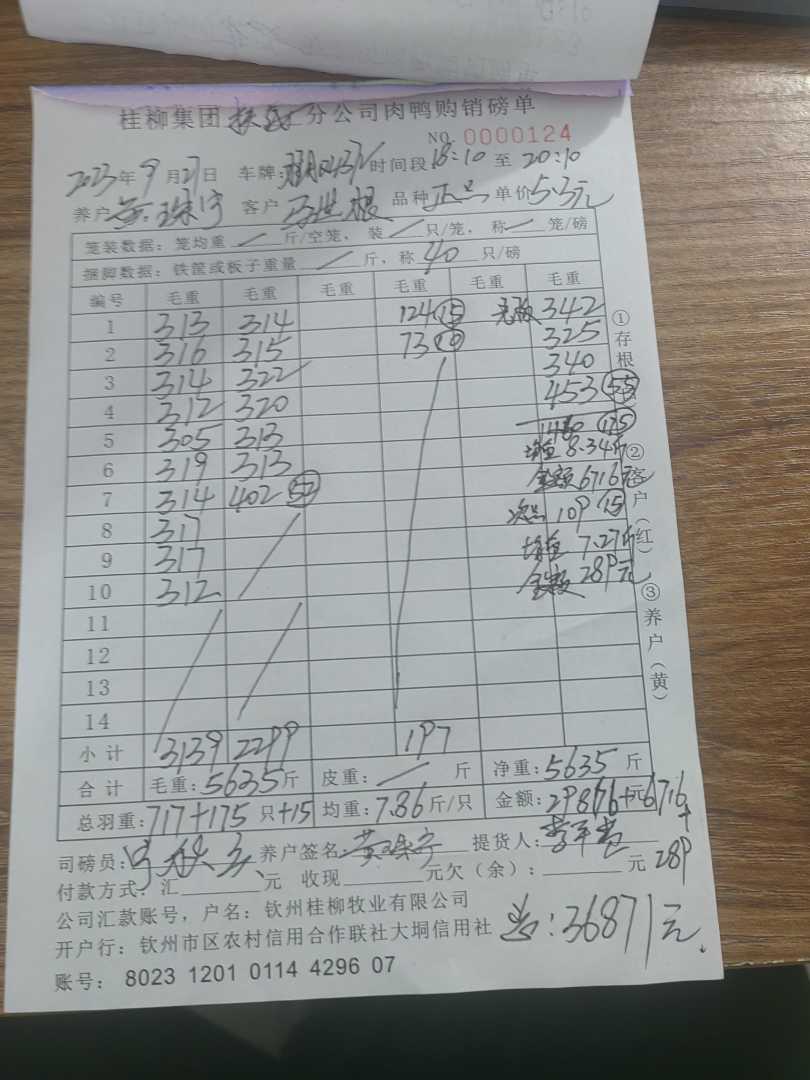 桂柳集团 分公司肉鸭购销磅单
NO. 0000124
2023年9月27日 车牌: 时间段18:10至20:10
养户黄珠宁 客户 品种正品 单价5.3元
笼装数据：笼均重 / 斤/空笼，装 / 只/笼，称 / 笼/磅
捆脚数据：铁筐或板子重量 / 斤，称 40 只/磅
编号 毛重 毛重 毛重 毛重 毛重 毛重
1 313 314 124(15) 342
2 316 315 73(10) 325
3 314 322 340
4 312 320 453(55)
5 305 313 1460(175)
6 319 313 均重8.34斤
7 314 402(52) 金额6716元
8 317 次品109(15)
9 317 均重7.27斤
10 312 金额289元
11
12
13
14
小计 3139 2299 197
合计 毛重：5635斤 皮重：/ 斤 净重：5635斤
总羽重：717+175只+15 均重：7.86斤/只 金额：29866元+6716+289
司磅员： 养户签名：黄珠宁 提货人：
付款方式：汇 元 收现 元欠（余）： 元
公司汇款账号，户名：钦州桂柳牧业有限公司
开户行：钦州市区农村信用合作联社大垌信用社
:36871元
账号：8023 1201 0114 4296 07
①存根
②客户（红）
③养户（黄）